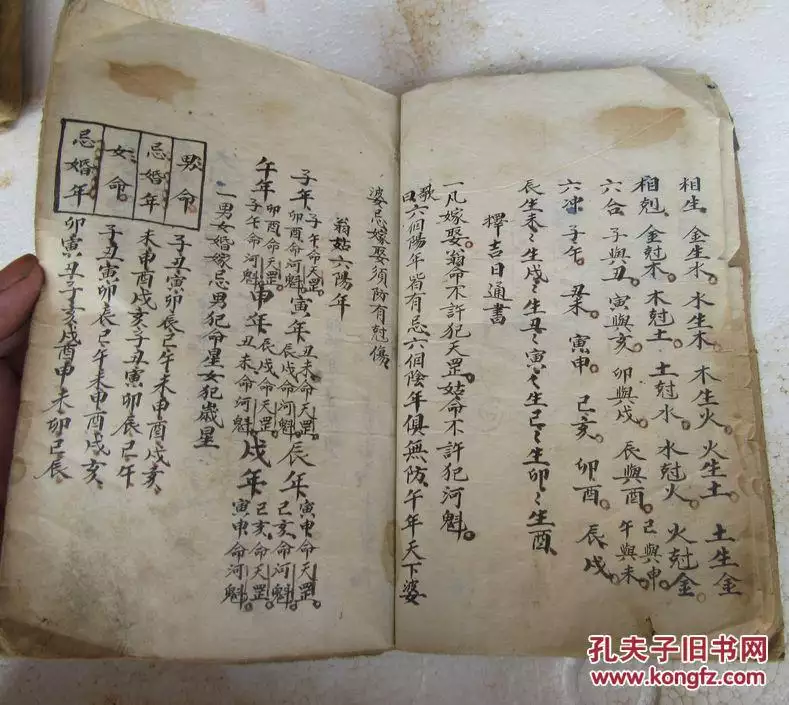 相生 金生水 水生木 木生火 火生土 土生金
相剋 金尅木 木尅土 土尅水 水尅火 火尅金
六合 子與丑 寅與亥 卯與戌 辰與酉 巳與申 午與未
六冲 子午 丑未 寅申 巳亥 卯酉 辰戌
辰生未〻生戌〻生丑〻寅〻生巳〻生卯〻生酉
擇吉日通書
一凡嫁娶翁命不許犯天罡姑命不許犯河魁
歌曰六個陽年皆有忌六個陰年俱無防午年天下婆
婆忌嫁娶須防有尅傷
翁姑六陽年
子年子午命天罡卯酉命河魁 寅年丑未命天罡辰戌命河魁 辰年寅申命天罡巳亥命河魁
午年卯酉命天罡子午命河魁 申年辰戌命天罡丑未命河魁 戌年巳亥命天罡寅申命河魁
一男女婚嫁忌男犯命星女犯歲星
男命 子丑寅卯辰巳午未申酉戌亥
忌婚年 未申酉戌亥子丑寅卯辰巳午
女命 子丑寅卯辰巳午未申酉戌亥
忌婚年 卯寅丑子亥戌酉申未 巳辰
孔夫子旧书网
www.kongfz.com